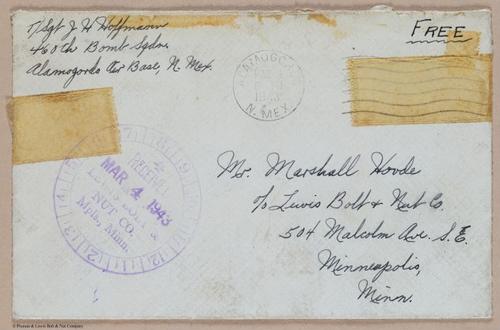 T/Sgt J H Hoffmann
460th Bomb Sqdn
Alamogordo Air Base, N. Mex.
FREE
ALAMOGORDO
1943
N. MEX.
RECEIVED
MAR 4 1943
LEWIS BOLT &
NUT CO.
Mpls, Minn.
Mr. Marshall Hovde
c/o Lewis Bolt & Nut Co.
504 Malcolm Ave. S.E.
Minneapolis,
Minn.